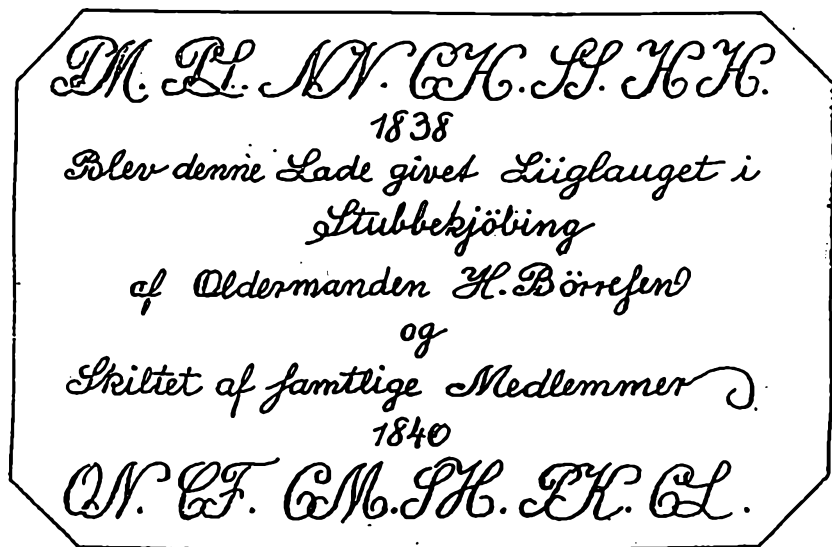 PM. PL. NN. CH. SS. HH.
1838
Blev denne Lade givet Liiglauget i
Stubbekjöbing
af Oldermanden H. Börresen
og
Skiltet af samtlige Medlemmer
1840
ON. CF. CM. SH. PK. CL.